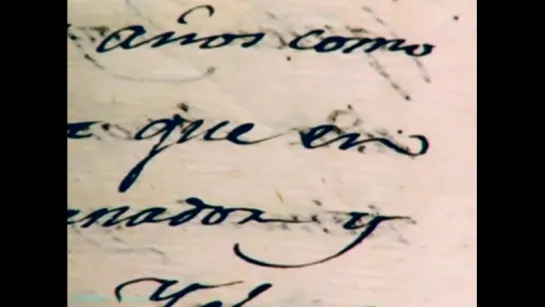 años como
que en
nador y